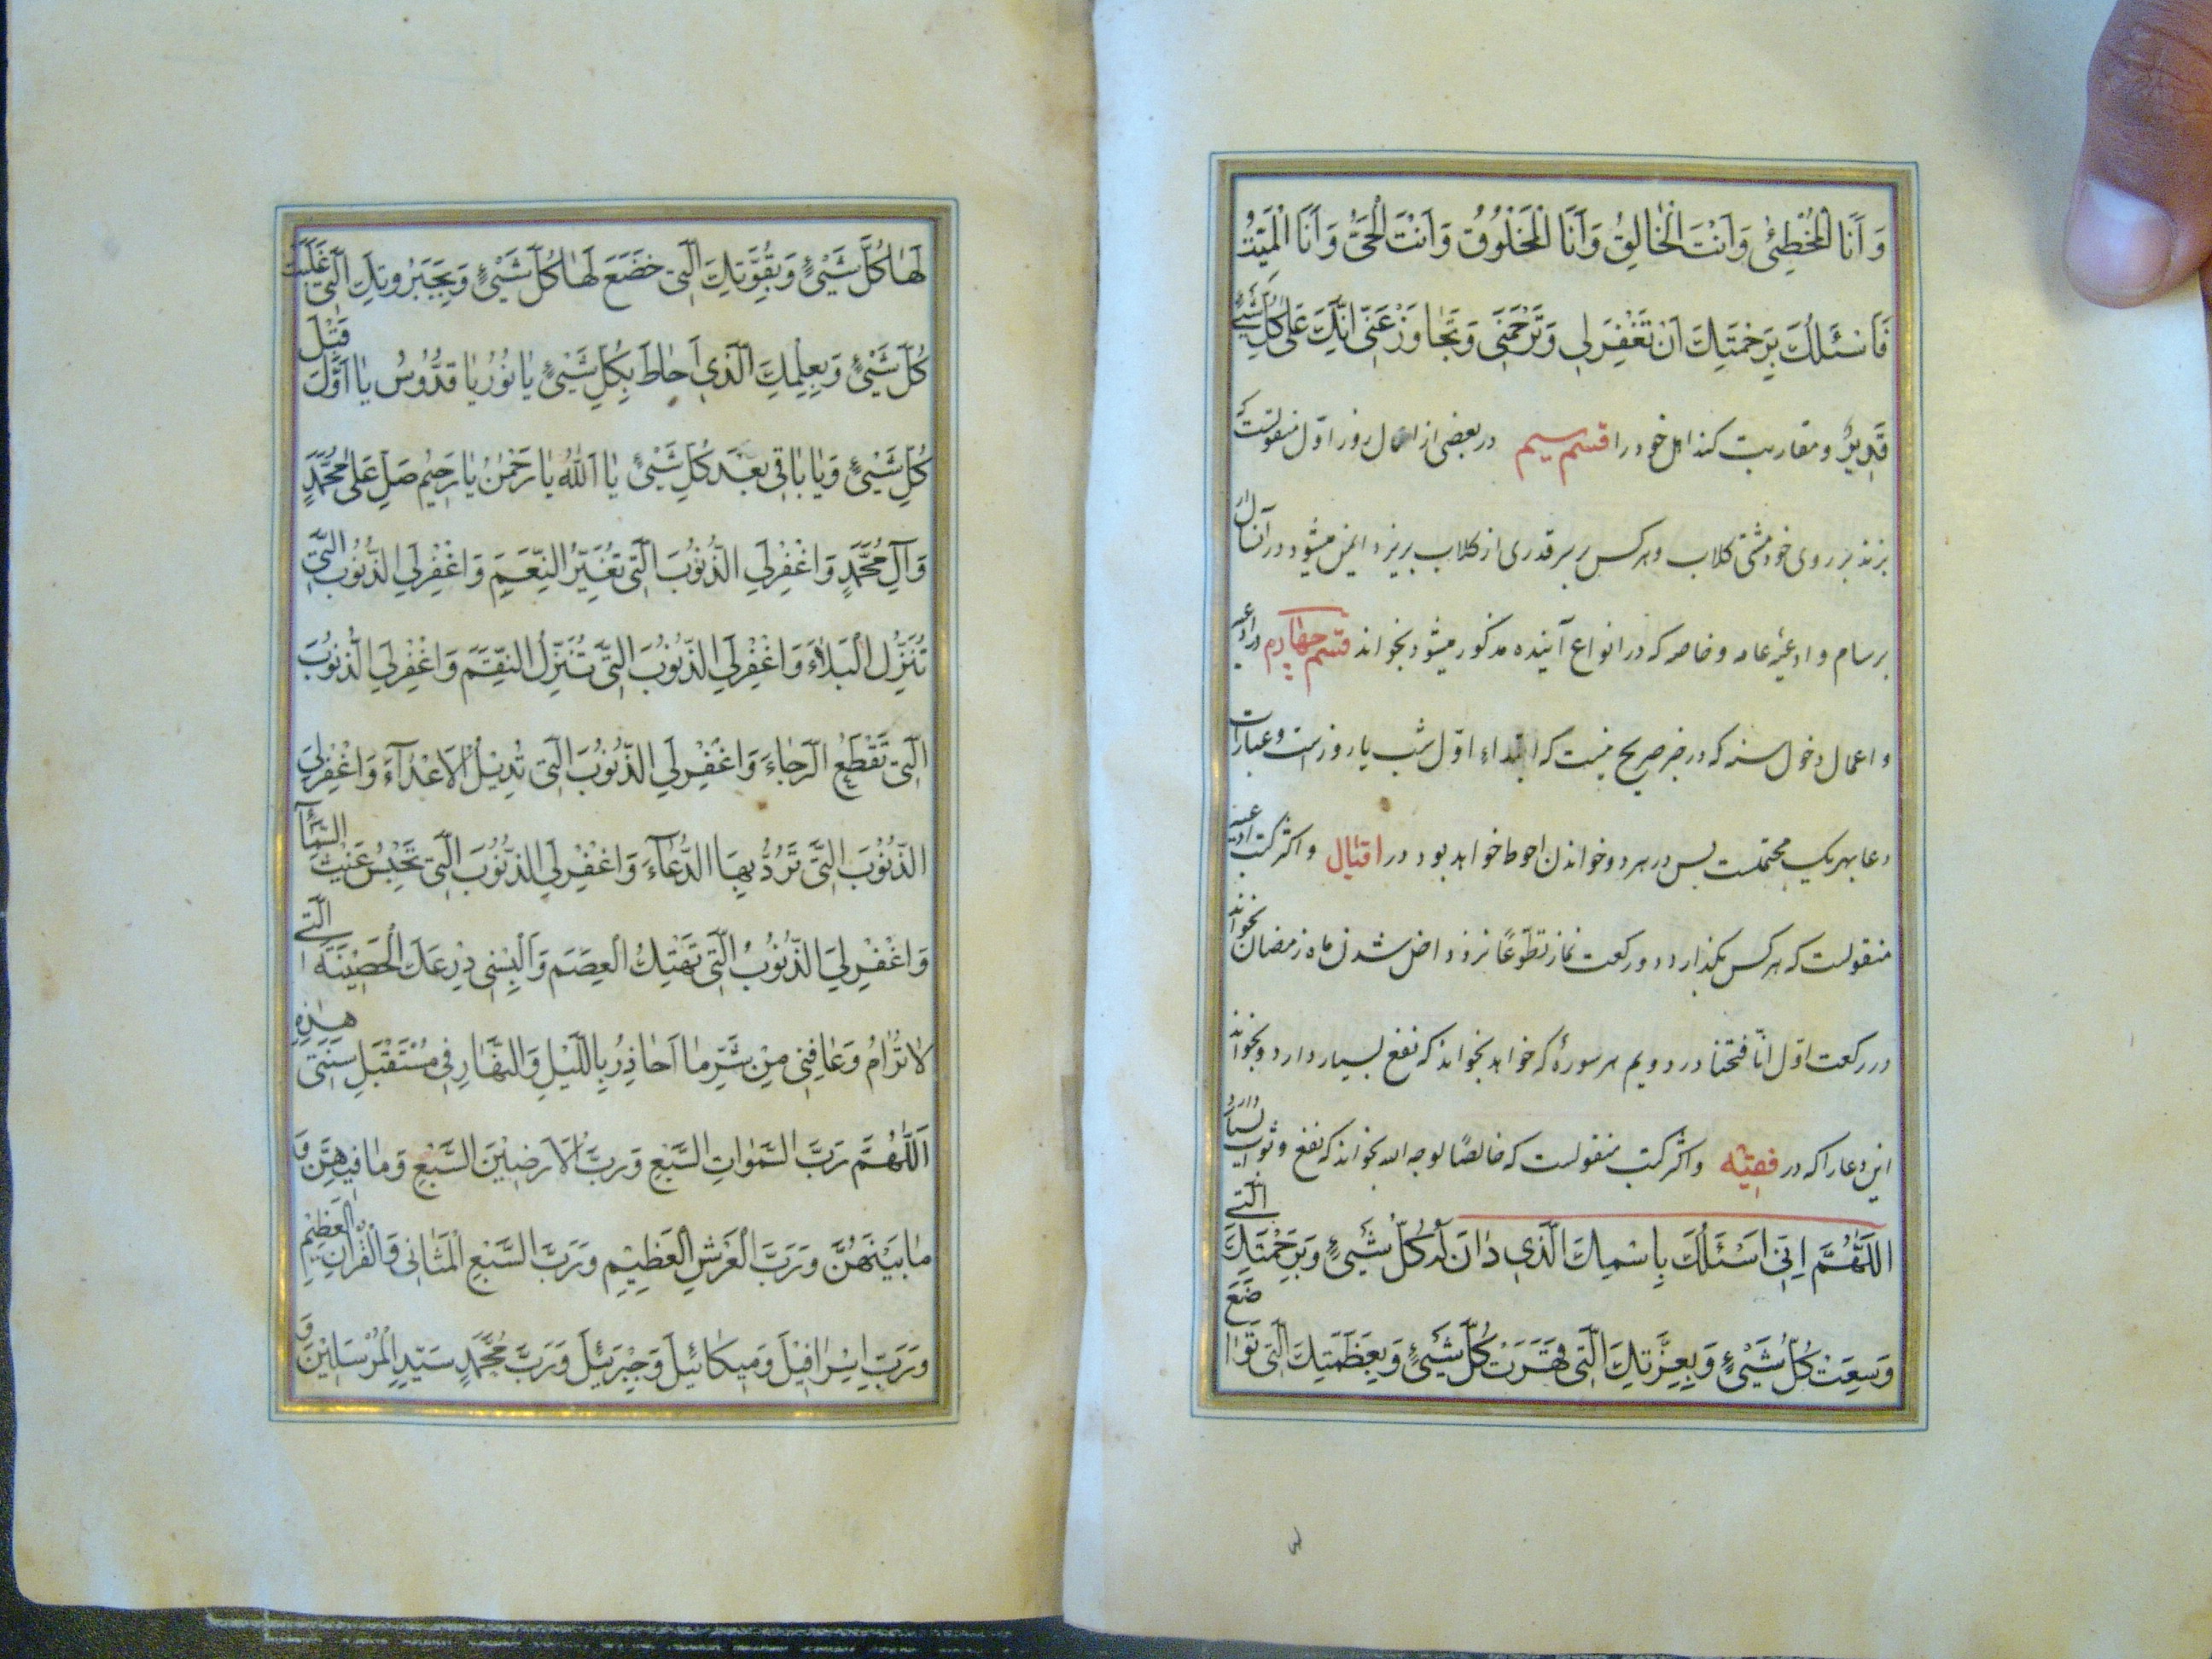 وَاَنَا الْمُخْطِئُ وَاَنْتَ الْخٰالِقُ وَاَنَا الْمَخْلُوقُ وَاَنْتَ الْحَيُّ وَاَنَا الْمَيِّتُ
فَاَسْئَلُكَ بِرَحْمَتِكَ اَنْ تَغْفِرَ لِي وَتَرْحَمَنِي وَتَجٰاوَزْ عَنِّي اِنَّكَ عَلٰى كُلِّ شَيْءٍ
قَدِيرٌ و مقاربت کند اهل خود را قسم سیم در بعضی از اعمال روز اوّل منقولست که
بزند بر روی خود مشتی گلاب و هر کس بر سر قدری از گلاب بریزد ایمن میشود در آنسال از
برسام و ادعیهٔ عامه و خاصه که در انواع آینده مذکور میشود بخواند قسم چهارم در ادعیه
و اعمال دخول سنه که در خبر صریح نیست که ابتداء اوّل شب یا روز است و عبارات
دعا بهر یک محتملست پس در هر دو خواندن احوط خواهد بود در اقبال و اکثر کتب ادعیه
منقولست که هر کس بگذارد دو رکعت نماز تطوّعًا نزد داخل شدن ماه رمضان بخواند
در رکعت اوّل انّا فتحنا در دویم هر سورهٔ که خواهد بخواند که نفع بسیار دارد و بخواند
این دعا را که در فقیه و اکثر کتب منقولست که خالصًا لوجه الله بخواند که نفع و ثواب بسیار دارد
اَللّٰهُمَّ اِنِّي اَسْئَلُكَ بِاسْمِكَ الَّذِي دٰانَ لَهُ كُلُّ شَيْءٍ وَبِرَحْمَتِكَ الَّتِي
وَسِعَتْ كُلَّ شَيْءٍ وَبِعِزَّتِكَ الَّتِي قَهَرَتْ كُلَّ شَيْءٍ وَبِعَظَمَتِكَ الَّتِي تَوٰاضَعَ
لَهٰا كُلُّ شَيْءٍ وَبِقُوَّتِكَ الَّتِي خَضَعَ لَهٰا كُلُّ شَيْءٍ وَبِجَبَرُوتِكَ الَّتِي غَلَبَتْ
كُلَّ شَيْءٍ وَبِعِلْمِكَ الَّذِي اَحٰاطَ بِكُلِّ شَيْءٍ يٰا نُورُ يٰا قُدُّوسُ يٰا اَوَّلَ قَبْلَ
كُلِّ شَيْءٍ وَيٰا بٰاقِي بَعْدَ كُلِّ شَيْءٍ يٰا اَللّٰهُ يٰا رَحْمٰنُ يٰا رَحِيمُ صَلِّ عَلٰى مُحَمَّدٍ
وَآلِ مُحَمَّدٍ وَاغْفِرْ لِيَ الذُّنُوبَ الَّتِي تُغَيِّرُ النِّعَمَ وَاغْفِرْ لِيَ الذُّنُوبَ الَّتِي
تُنَزِّلُ الْبَلٰاءَ وَاغْفِرْ لِيَ الذُّنُوبَ الَّتِي تُنَزِّلُ النِّقَمَ وَاغْفِرْ لِيَ الذُّنُوبَ
الَّتِي تَقْطَعُ الرَّجٰاءَ وَاغْفِرْ لِيَ الذُّنُوبَ الَّتِي تُدِيلُ الْاَعْدٰآءَ وَاغْفِرْ لِيَ
الذُّنُوبَ الَّتِي تَرُدُّ بِهَا الدُّعٰآءَ وَاغْفِرْ لِيَ الذُّنُوبَ الَّتِي تَحْبِسُ غَيْثَ السَّمٰآءِ
وَاغْفِرْ لِيَ الذُّنُوبَ الَّتِي تَهْتِكُ الْعِصَمَ وَاَلْبِسْنِي دِرْعَكَ الْحَصِينَةَ الَّتِي
لٰا تُرٰامُ وَعٰافِنِي مِنْ شَرِّ مٰا اُحٰاذِرُ بِاللَّيْلِ وَالنَّهٰارِ فِي مُسْتَقْبَلِ سَنَتِي هٰذِهِ
اَللّٰهُمَّ رَبَّ السَّمٰوٰاتِ السَّبْعِ وَرَبَّ الْاَرَضِينَ السَّبْعِ وَمٰا فِيهِنَّ وَ
مٰا بَيْنَهُنَّ وَرَبَّ الْعَرْشِ الْعَظِيمِ وَرَبَّ السَّبْعِ الْمَثٰانِي وَالْقُرْاٰنِ الْعَظِيمِ
وَرَبَّ اِسْرٰافِيلَ وَمِيكٰائِيلَ وَجِبْرَئِيلَ وَرَبَّ مُحَمَّدٍ سَيِّدِ الْمُرْسَلِينَ وَ